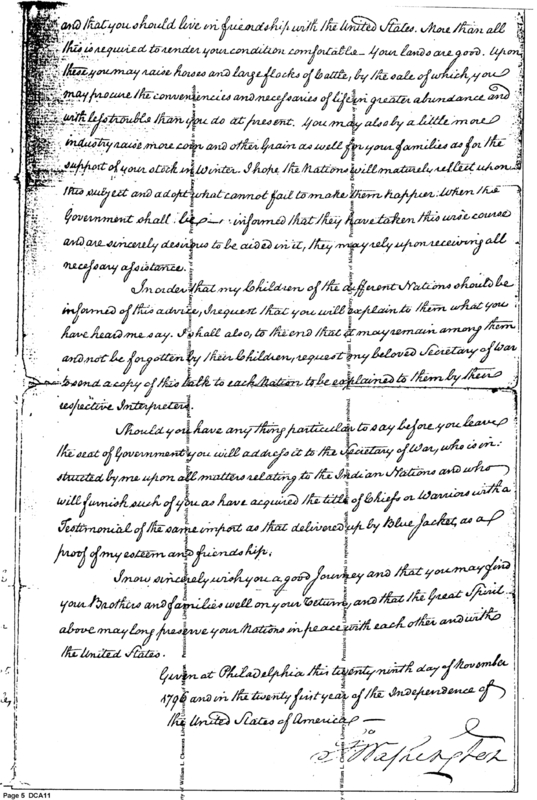 and that you should live in friendship with the United States. More than all
this is required to render your condition comfortable_ Your lands are good. Upon
these you may raise horses and large flocks of Cattle, by the sale of which, you
may procure the conveniencies and necessaries of life in greater abundance and
with less trouble than you do at present. You may also by a little more
industry raise more corn and other Grain as well for your families as for the
support of your stock in Winter. I hope the Nations will maturely reflect upon
this subject and adopt what cannot fail to make them happier. When the
Government shall be informed that they have taken this wise course
and are sincerely desirous to be aided in it, they may rely upon receiving all
necessary assistance.
In order that my Children of the different Nations should be
informed of this advice, I request that you will explain to them what you
have heard me say. I shall also, to the end that it may remain among them
and not be forgotten by their Children, request my beloved Secretary of War
to send a copy of this talk to each Nation to be explained to them by their
respective Interpreters.
Should you have any thing particular to say before you leave
the seat of Government you will address it to the Secretary of War, who is in:
structed by me upon all matters relating to the Indian Nations and who
will furnish such of you as have acquired the title of Chiefs or Warriors with a
Testimonial of the same import as that delivered up by Blue Jacket, as a
proof of my esteem and friendship.
I now sincerely wish you a good Journey and that you may find
your Brothers and families well on your return, and that the Great Spirit
above may long preserve your Nations in peace with each other and with
the United States.
Given at Philadelphia this twenty ninth day of November
1796 and in the twenty first year of the Independence of
the United States of America —
Go Washington
Page 5 DCA11